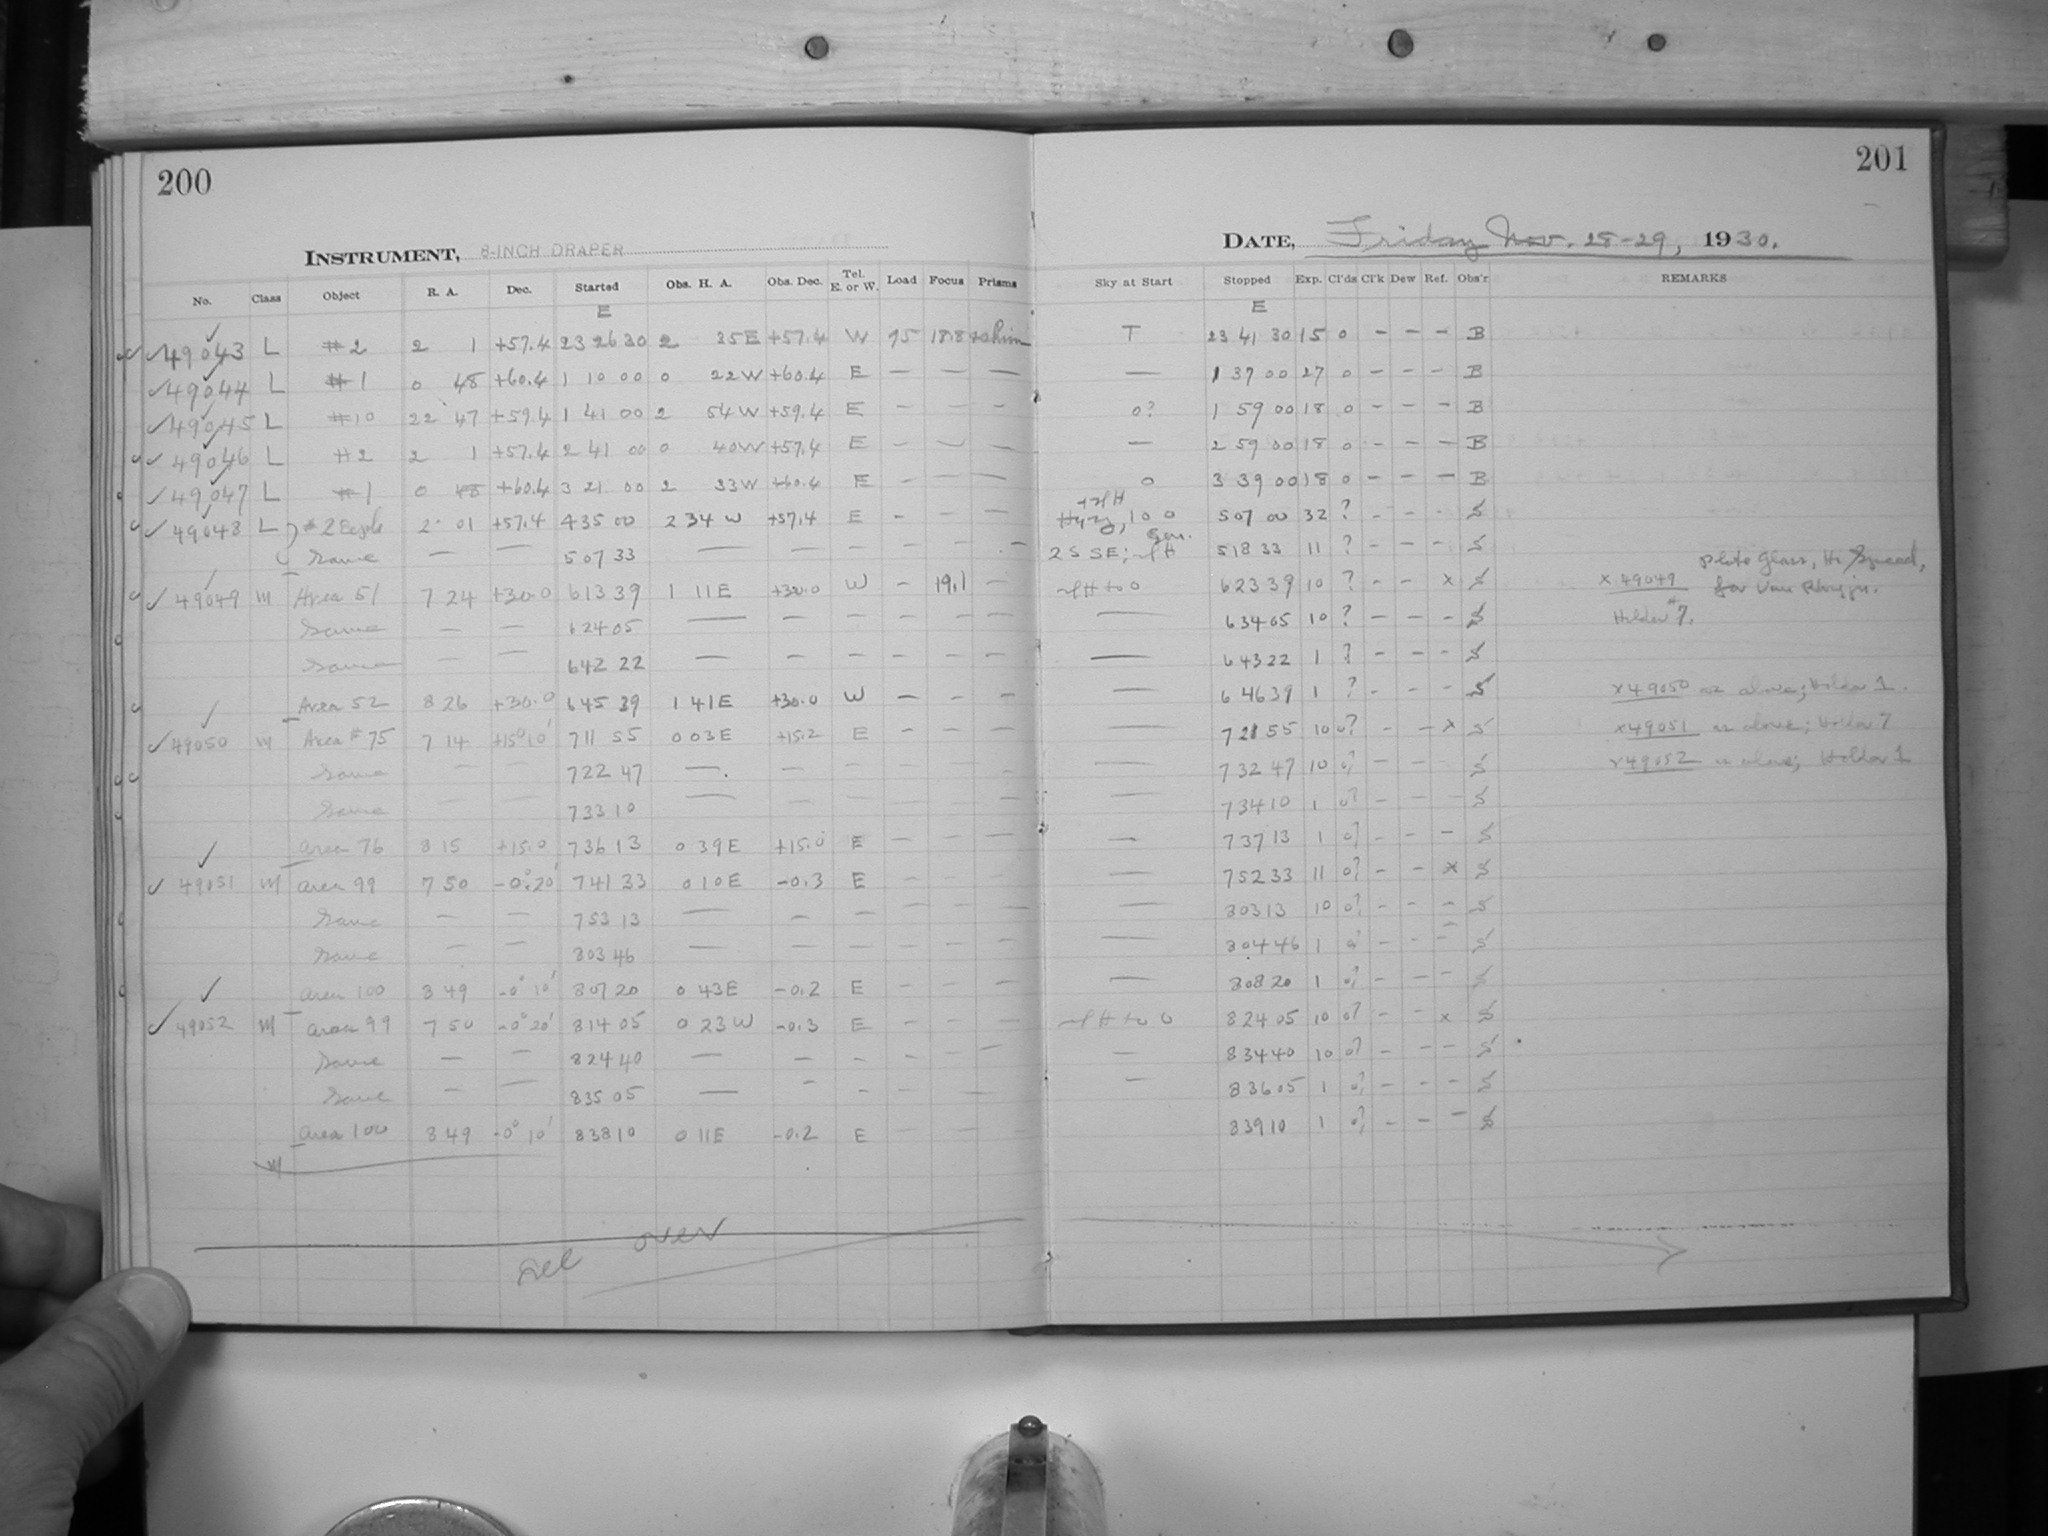 200
INSTRUMENT, 8-INCH DRAPER
No. Class Object R. A. Dec. Started Obs. H. A. Obs. Dec. Tel. E. or W. Load Focus Prisms
E
49043 L #2 2 1 +57.4 23 26 30 2 35E +57.4 W 95 18.8
49044 L #1 0 48 +60.4 1 10 00 0 22W +60.4 E — — —
49045 L #10 22 47 +59.4 1 41 00 2 54W +59.4 E — — —
49046 L #2 2 1 +57.4 2 41 00 0 40W +57.4 E — — —
49047 L #1 0 48 +60.4 3 21 00 2 33W +60.4 E — — —
49048 L #2 2 01 +57.4 4 35 00 2 34 W +57.4 E — — —
Same — — 5 07 33 — — — — — —
49049 M Area 51 7 24 +30.0 6 13 39 1 11E +30.0 W — 19.1 —
Same — — 6 24 05 — — — — — —
Same — — 6 42 22 — — — — — —
Area 52 8 26 +30.0 6 45 39 1 41E +30.0 W — — —
49050 M Area #75 7 14 +15°10' 7 11 55 0 03E +15.2 E — — —
Same — — 7 22 47 — — — — — —
Same — — 7 33 10 — — — — — —
Area 76 8 15 +15.0 7 36 13 0 39E +15.0 E — — —
49051 M Area 99 7 50 -0°20' 7 41 33 0 10E -0.3 E — — —
Same — — 7 53 13 — — — — — —
Same — — 8 03 46 — — — — — —
Area 100 8 49 -0°10' 8 07 20 0 43E -0.2 E — — —
49052 M Area 99 7 50 -0°20' 8 14 05 0 23W -0.3 E — — —
Same — — 8 24 40 — — — — — —
Same — — 8 35 05 — — — — — —
Area 100 8 49 -0°10' 8 38 10 0 11E -0.2 E — —
M
see over
201
DATE, Friday Nov. 28-29, 1930.
Sky at Start Stopped Exp. Cl'ds Cl'k Dew Ref. Obs'r REMARKS
E
T 23 41 30 15 0 — — — B
— 1 37 00 27 0 — — — B
0? 1 59 00 18 0 — — — B
— 2 59 00 18 0 — — — B
0 3 39 00 18 0 — — — B
5 07 00 32 ? — — — S
2 S SE; 5 18 33 11 ? — — — S
to 0 6 23 39 10 ? — — x S x 49049 Plate Glass, Hi Speed,
for Van
— 6 34 05 10 ? — — — S Holder #7.
— 6 43 22 1 ? — — — S
— 6 46 39 1 ? — — — S x49050 as above; Holder 1.
— 7 21 55 10 0? — — x S x49051 as above; Holder 7
— 7 32 47 10 0? — — S x49052 as above; Holder 1
— 7 34 10 1 0? — — — S
— 7 37 13 1 0? — — — S
— 7 52 33 11 0? — — x S
— 8 03 13 10 0? — — — S
— 8 04 46 1 0? — — — S
— 8 08 20 1 0? — — — S
to 0 8 24 05 10 0? — — x S
— 8 34 40 10 0? — — — S
— 8 36 05 1 0? — — — S
8 39 10 1 0? — — — S